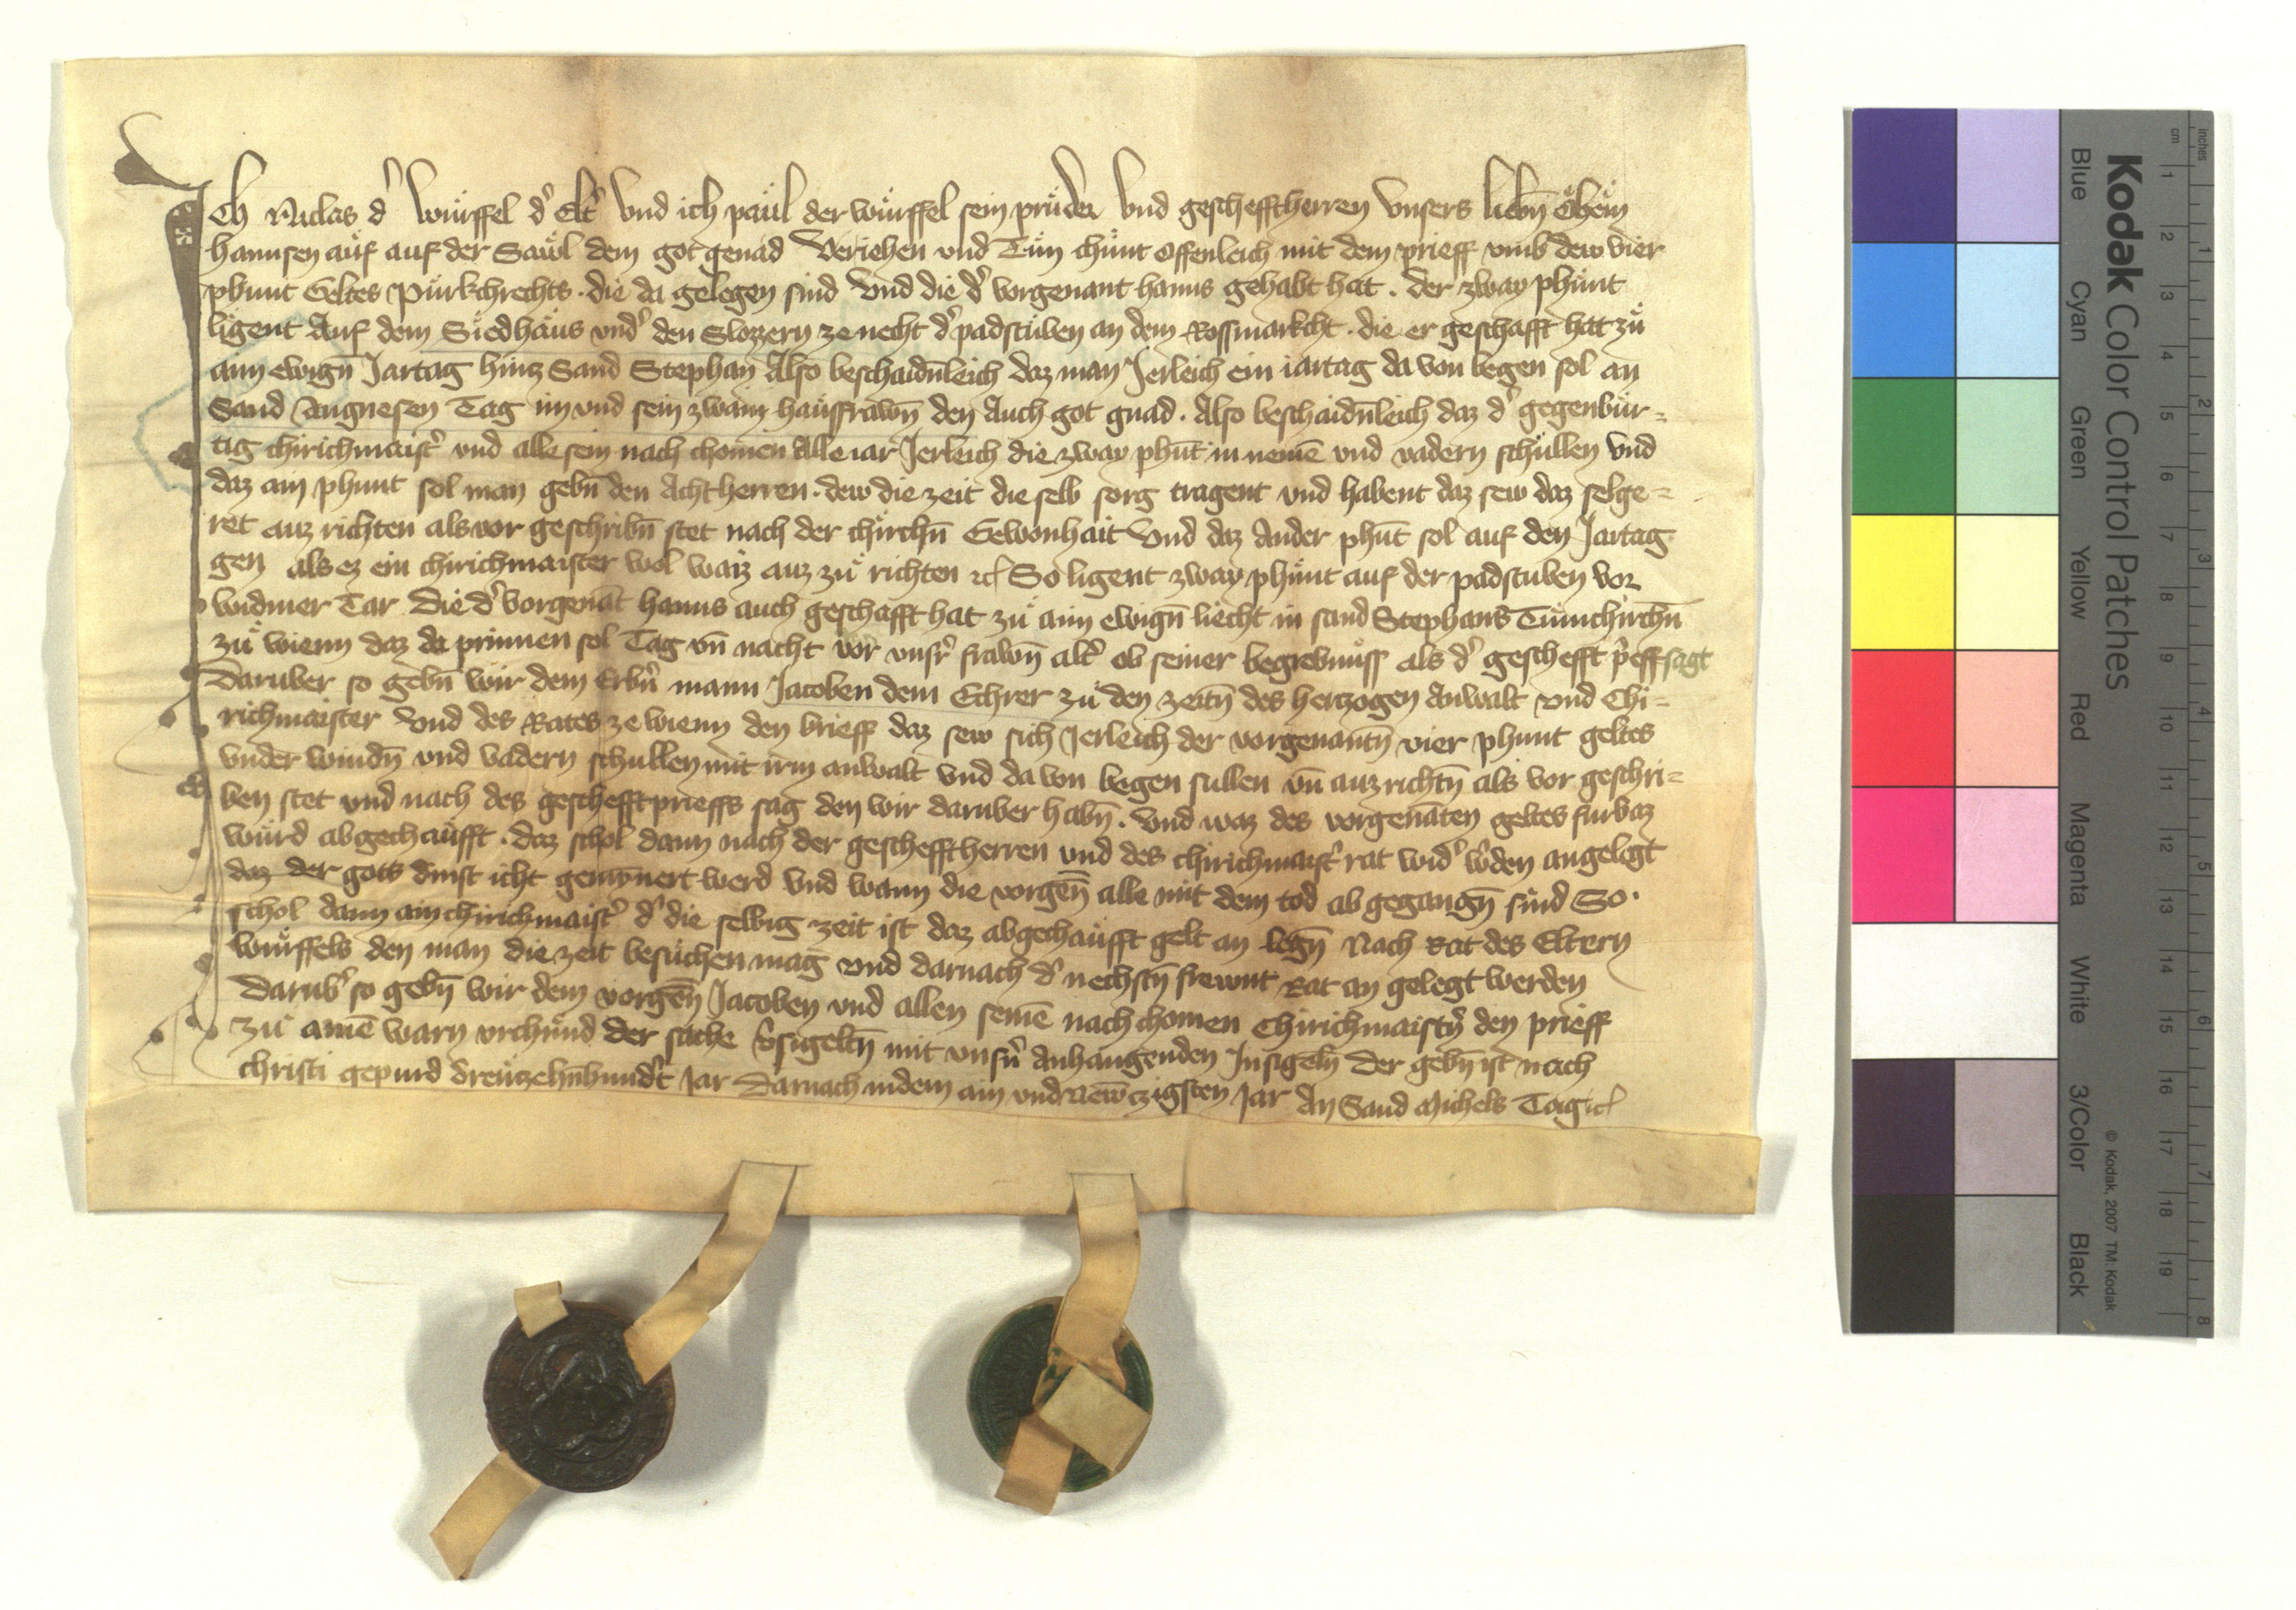 Ich Niclas d' Würffel d' Elt' Vnd ich paül der würffel sein prüder Vnd gescheftherren Vnsers liebn̄ Öheim
hannsen aüf auf der Saẅl dem got genad Veriehen vnd Tün chünt offenleich mit dem prieff vmb dew vier
phunt Geltes Pürkchrechts · die da gelegen sind Vnd die d' vorgenant hanns gehabt hat · der zway phünt
ligent Auf dem Siedhaüs vnd' den Slozzern ze necht d' padstüben an dem Rossmarkcht · die er geschafft hat zü
aim ewign̄ Jartag hincz Sand Stephan Also beschaidn̄leich daz man Jerleich ein iartag da von begen sol an
Sand Angnesen Tag im vnd sein zwain haüsfrawn̄ den Auch got gnad · Also beschaidn̄leich daz d' gegenbür=
tig chirichmaist' vnd alle sein nach chomen Alle iar Jerleich die zway phūt in nemē vnd vadern schüllen vnd
daz ain phunt sol man gebn̄ den Achtherren · dew die zeit die selb sorg tragent vnd habent daz sew daz selge=
ret auz richten als vor geschribn̄ stet nach der chirchn̄ Gewonhait Vnd daz Ander phūt sol auf den Jartag
gen als ez ein chirichmaister wol waiz auz zü richten ꝛc So ligent zway phünt auf der padstuben vor
widmer Tar Die d' vorgenāt hanns auch geschafft hat zü aim ewign̄ liecht in sand Stephans Tümchirchn̄
zü wienn daz da prinnen sol Tag vn̄ nacht vor vnsr' frawn̄ alt' ob seiner begrebnüss als d' geschefft p'eff sagt
Daruber so gebn̄ wir dem Erbn̄ mann Jacoben dem Echrer zü den zeitn̄ des herczogen Anwalt vnd Chi=
richmaister Vnd des Rates ze wienn den brieff daz sew sich Jerleich der vorgenantn̄ vier phunt geltes
vnder windn̄ vnd vadern schullen mit irm anwalt vnd da von begen sullen vn̄ auzrichtn̄ als vor geschri=
ben stet vnd nach des geschefftprieffs sag den wir daruber habn̄ · Vnd waz des vorgenāten geltes furbaz
würd abgechaüfft · daz schol dann nach der gescheftherren vnd des chirichmaist' rat wid' w'den angelegt
daz der gots dinst icht gemynnert werd Vnd wann die vorgen̄ alle mit dem tod ab gegangn̄ sind So ·
schol dann ain chirichmaist' d' die selbig zeit ist daz abgechaüfft gelt an legn̄ Nach Rat des Eltern
würffels den man die zeit besüchen mag vnd darnach d' nechstn̄ frewnt Rat an gelegt werden
Darub' so gebn̄ wir dem vorgen̄ Jacoben vnd allen seinē nach chomen Chirichmaistn̄ den prieff
zü ainē warn vrchünd der sache v'sigeltn̄ mit vnsn̄ anhangenden Insigeln̄ Der gebn̄ ist nach
christi gepurd Dreüzehnhundt' Jar Darnach in dem ain vnd Newczigsten Jar An Sand Michels Tag ꝛc
Kodak Color Control Patches
Blue Cyan Green Yellow Red Magenta White 3/Color Black
© Kodak, 2007 TM: Kodak
cm 1 2 3 4 5 6 7 8 9 10 11 12 13 14 15 16 17 18 19
inches 1 2 3 4 5 6 7 8